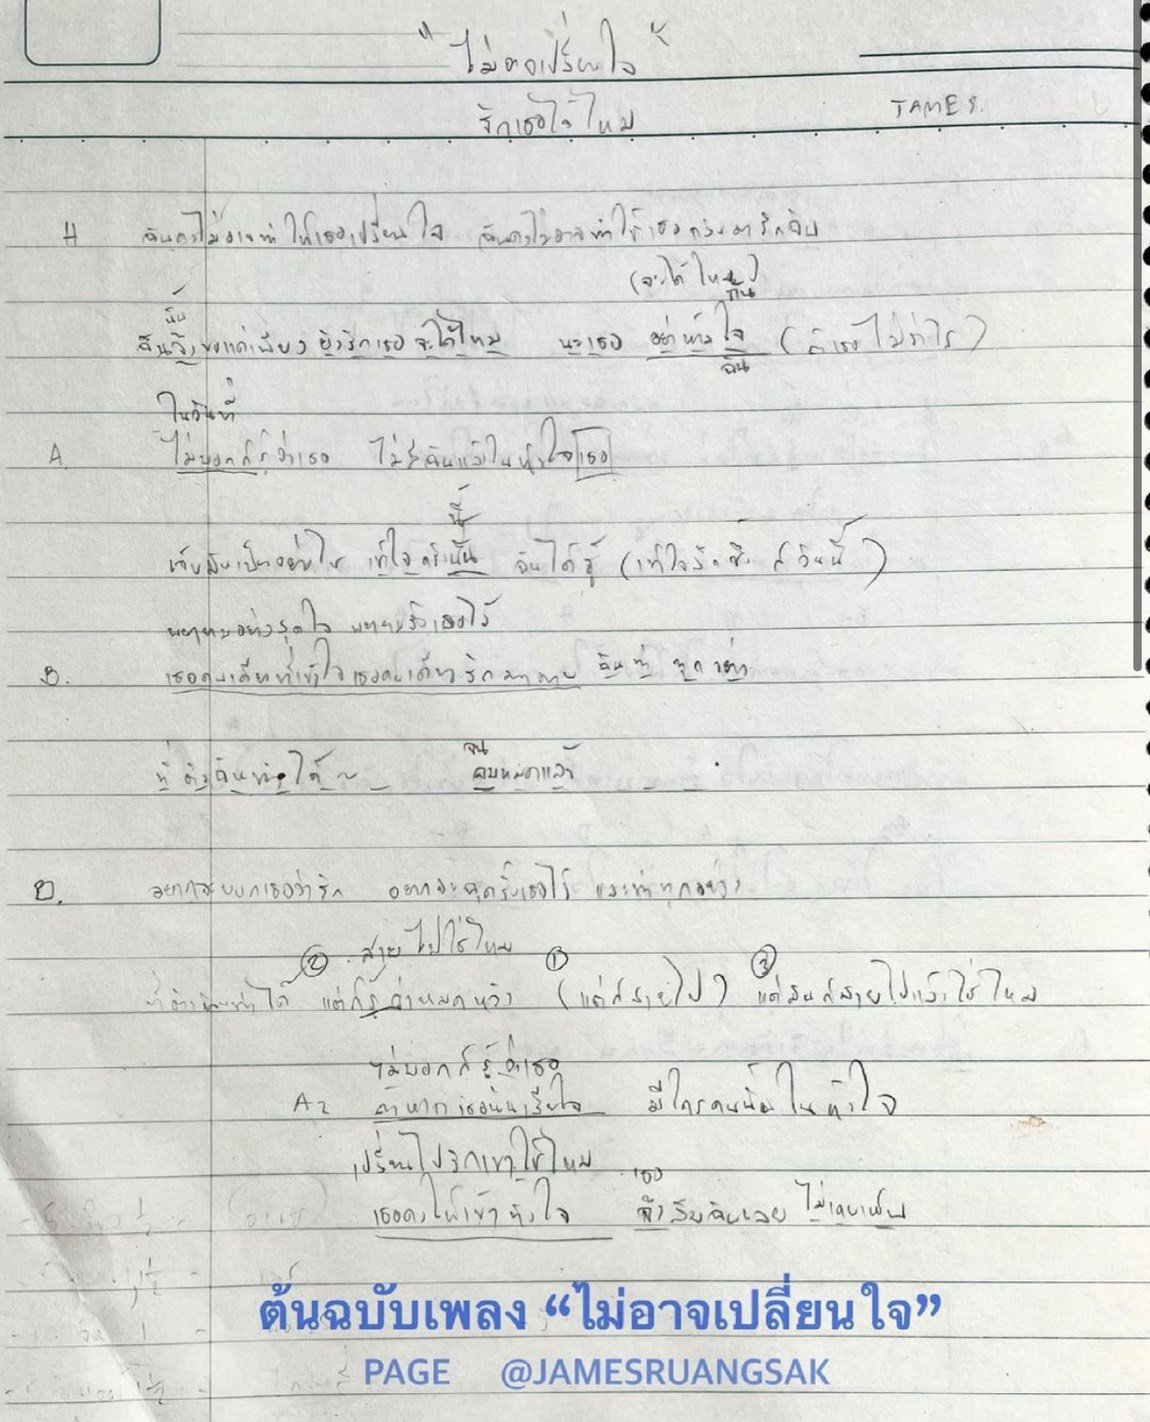 "ไม่อาจเปลี่ยนใจ"
รักเธอได้ไหม
JAMES.
H ฉันคงไม่อาจทำให้เธอเปลี่ยนใจ ฉันคงไม่อาจทำให้เธอกลับมารักฉัน
(จะได้ไหม)
กัน
นั้น
ฉันจึงขอแค่เพียง ยังรักเธอ จะได้ไหม นะเธอ อย่าห้ามใจ (ถ้าเธอไม่ว่าไร)
ฉัน
ในวันที่
A. ไม่บอกก็รู้ว่าเธอ ไม่มีฉันแล้วในหัวใจเธอ
นี้
เจ็บมันเป็นอย่างไร เข้าใจครั้งนั้น ฉันได้รู้ (เข้าใจลึกซึ้งก็วันนี้)
พยายามอย่างสุดใจ พยายามรั้งเธอไว้
B. เธอคนเดียวที่เข้าใจ เธอคนเดียวรักมากมาย ฉันทำทุกอย่าง
ที่ตัวฉันทำได้ ~
จน
จบหมดแล้ว
B. อยากจะบอกเธอว่ารัก อยากจะฉุดรั้งเธอไว้ และทำทุกอย่าง
② สายไปใช่ไหม ① ③
ที่ตัวฉันทำได้ แต่ก็รู้ว่าหมดหวัง (แต่ก็สายไป) แต่มันก็สายไปแล้วใช่ไหม
ไม่บอกก็รู้ว่าเธอ
A2 ถ้าหากเธอนั้นเสียใจ มีใครคนนั้นในหัวใจ
เปลี่ยนไปรักเขาใช่ไหม
เธอ
เธอคงให้เขาทั้งใจ จึงลืมฉันเลย ไม่เคยเห็น
ต้นฉบับเพลง “ไม่อาจเปลี่ยนใจ”
PAGE @JAMESRUANGSAK